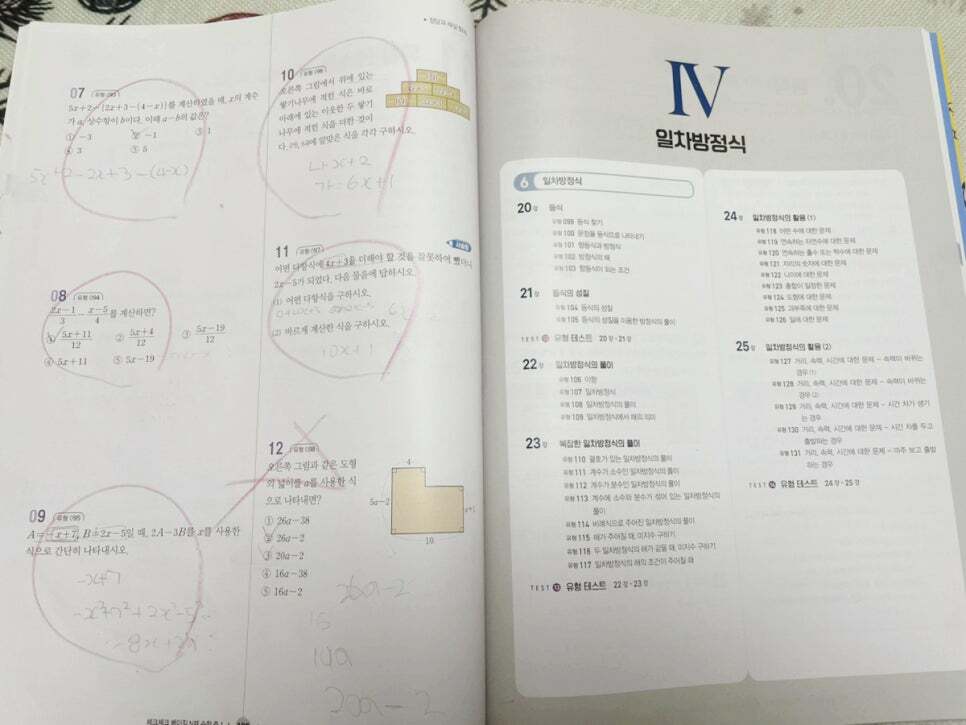 ▸ 정답과 해설
07 유형 093
5x+2-{2x+3-(4-x)}를 계산하였을 때, x의 계수
가 a, 상수항이 b이다. 이때 a-b의 값은?
① -3 ② -1 ③ 1
④ 3 ⑤ 5
5x+2-2x+3-(4-x)
08 유형 094
(2x-1)/3 - (x-5)/4 를 계산하면?
① (5x+11)/12 ② (5x+4)/12 ③ (5x-19)/12
④ 5x+11 ⑤ 5x-19
09 유형 095
A=-x+7, B=2x-5일 때, 2A-3B를 x를 사용한
식으로 간단히 나타내시오.
-x+7
10 유형 096
오른쪽 그림에서 위에 있는
쌓기나무에 적힌 식은 바로
아래에 있는 이웃한 두 쌓기
나무에 적힌 식을 더한 것이
다. (가), (나)에 알맞은 식을 각각 구하시오.
11 유형 097 서술형
어떤 다항식에 4x+3을 더해야 할 것을 잘못하여 뺐더니
2x-5가 되었다. 다음 물음에 답하시오.
(1) 어떤 다항식을 구하시오.
(2) 바르게 계산한 식을 구하시오.
10x+1
12 유형 098
오른쪽 그림과 같은 도형
의 넓이를 a를 사용한 식
으로 나타내면?
4
5a-2
10
① 26a-38
② 26a-2
③ 20a-2
④ 16a-38
⑤ 16a-2
26a-2
20a-2
IV
일차방정식
6 일차방정식
20강 등식
유형 099 등식 찾기
유형 100 문장을 등식으로 나타내기
유형 101 항등식과 방정식
유형 102 방정식의 해
유형 103 항등식이 되는 조건
21강 등식의 성질
유형 104 등식의 성질
유형 105 등식의 성질을 이용한 방정식의 풀이
TEST 유형 테스트 20강·21강
22강 일차방정식의 풀이
유형 106 이항
유형 107 일차방정식
유형 108 일차방정식의 풀이
유형 109 일차방정식에서 해의 의미
23강 복잡한 일차방정식의 풀이
유형 110 괄호가 있는 일차방정식의 풀이
유형 111 계수가 소수인 일차방정식의 풀이
유형 112 계수가 분수인 일차방정식의 풀이
유형 113 계수에 소수와 분수가 섞여 있는 일차방정식의
풀이
유형 114 비례식으로 주어진 일차방정식의 풀이
유형 115 해가 주어질 때, 미지수 구하기
유형 116 두 일차방정식의 해가 같을 때, 미지수 구하기
유형 117 일차방정식의 해의 조건이 주어질 때
TEST 13 유형 테스트 22강·23강
24강 일차방정식의 활용 (1)
유형 118 어떤 수에 대한 문제
유형 119 연속하는 자연수에 대한 문제
유형 120 연속하는 홀수 또는 짝수에 대한 문제
유형 121 자리의 숫자에 대한 문제
유형 122 나이에 대한 문제
유형 123 총합이 일정한 문제
유형 124 도형에 대한 문제
유형 125 과부족에 대한 문제
유형 126 일에 대한 문제
25강 일차방정식의 활용 (2)
유형 127 거리, 속력, 시간에 대한 문제 – 속력이 바뀌는
경우 (1)
유형 128 거리, 속력, 시간에 대한 문제 – 속력이 바뀌는
경우 (2)
유형 129 거리, 속력, 시간에 대한 문제 – 시간 차가 생기
는 경우
유형 130 거리, 속력, 시간에 대한 문제 – 시간 차를 두고
출발하는 경우
유형 131 거리, 속력, 시간에 대한 문제 – 마주 보고 출발
하는 경우
TEST 14 유형 테스트 24강·25강